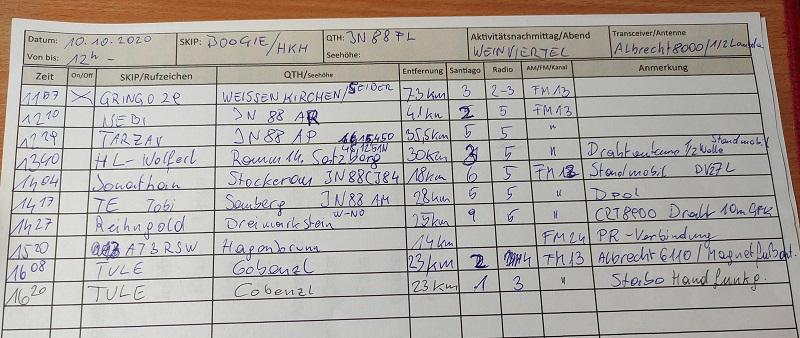 Datum: 10.10.2020 SKIP: BOOGIE/HKH QTH: JN88FL Aktivitätsnachmittag/Abend Transceiver/Antenne
Von bis: 12h - Seehöhe: WEINVIERTEL Albrecht 8000/1/2 Lambda
Zeit On/Off SKIP/Rufzeichen QTH/Seehöhe Entfernung Santiago Radio AM/FM/Kanal Anmerkung
1157 X GRINGO 29 WEISSENKIRCHEN/SEIBER 73km 3 2-3 FM13
1210 NEBI JN 88 AR 41km 2 5 FM13
1229 TARZAN JN 88 AP 35,5km 5 5 "
1340 HL-Wolferl Raum 14. 30km 3 5 " Drahtantenne 1/2 Welle Standmobil
1404 Jonathan Stockerau JN88CJ84 18km 6 5 Standmobil DV27L
1417 TE Tobi JN88 AM 28km 5 5 " Dpol
1427 Reihngold Dreimarkstein W-NÖ 25km 9 5 " CRT8900 Draht 10m GFK
1520 A73RSW Hagenbrunn 14km FM24 PR-Verbindung
1608 TULE Cobenzl 23km 2 4 FM13 Albrecht 6110/Magnetfußant.
1620 TULE Cobenzl 23km 1 3 " Stabo Handfunkg.